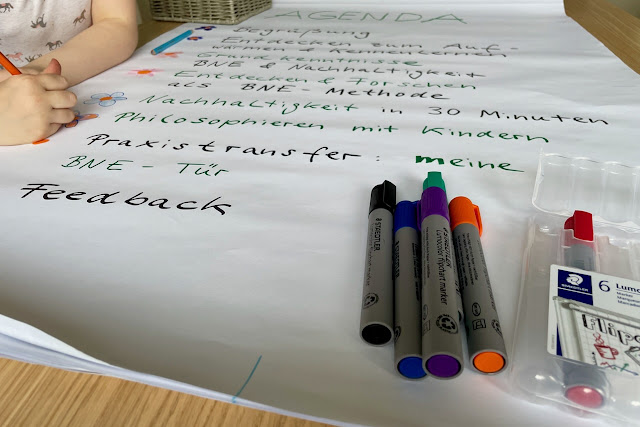 AGENDA
Begrüßung
Entdecken zum Auf-
wärmen & Kennenlernen
Grundkenntnisse
BNE & Nachhaltigkeit
Entdecken & Forschen
als BNE-Methode
Nachhaltigkeit in 30 Minuten
Philosophieren mit Kindern
Praxistransfer: meine
BNE-Tür
Feedback
STAEDTLER
Lumocolor flipchart marker
STAEDTLER
6 Lumo
Flip